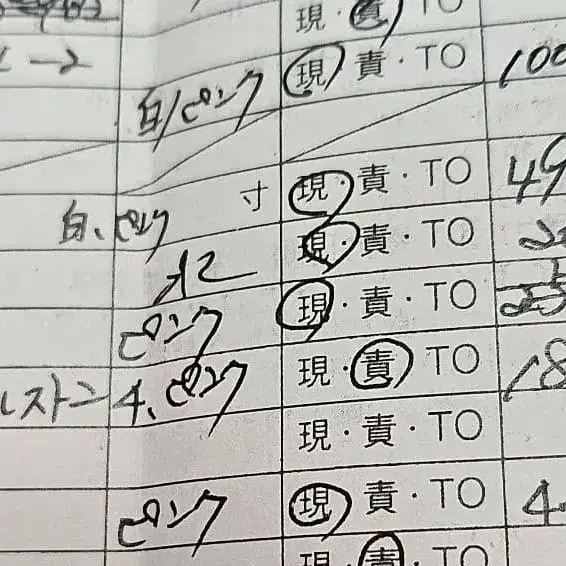 現・責・TO
-2
白/ピンク 現・責・TO 100
寸 現・責・TO 49
白、ピンク
現・責・TO
ピンク 現・責・TO
レストン 4、ピンク 現・責・TO 18
現・責・TO
ピンク 現・責・TO 4
現・責・TO